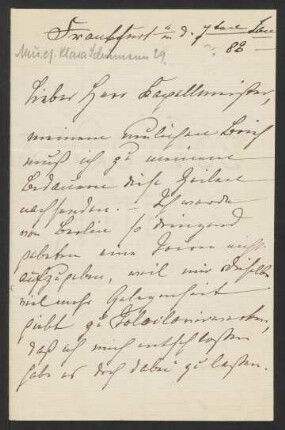 Frankfurt a. d. 7ten Jan
82
Musg. Klara Schumann 29.
Lieber Herr Kapellmeister,
meinem neulichen Brief
muß ich zu meinem
Bedauern diese Zeilen
nachsenden. Ich werde
von Berlin so dringend
gebeten eine Soiree nicht
aufzugeben, weil mir dieselbe
viel mehr Gelegenheit
giebt zu
daß ich mich entschlossen
habe es doch dabei zu lassen.